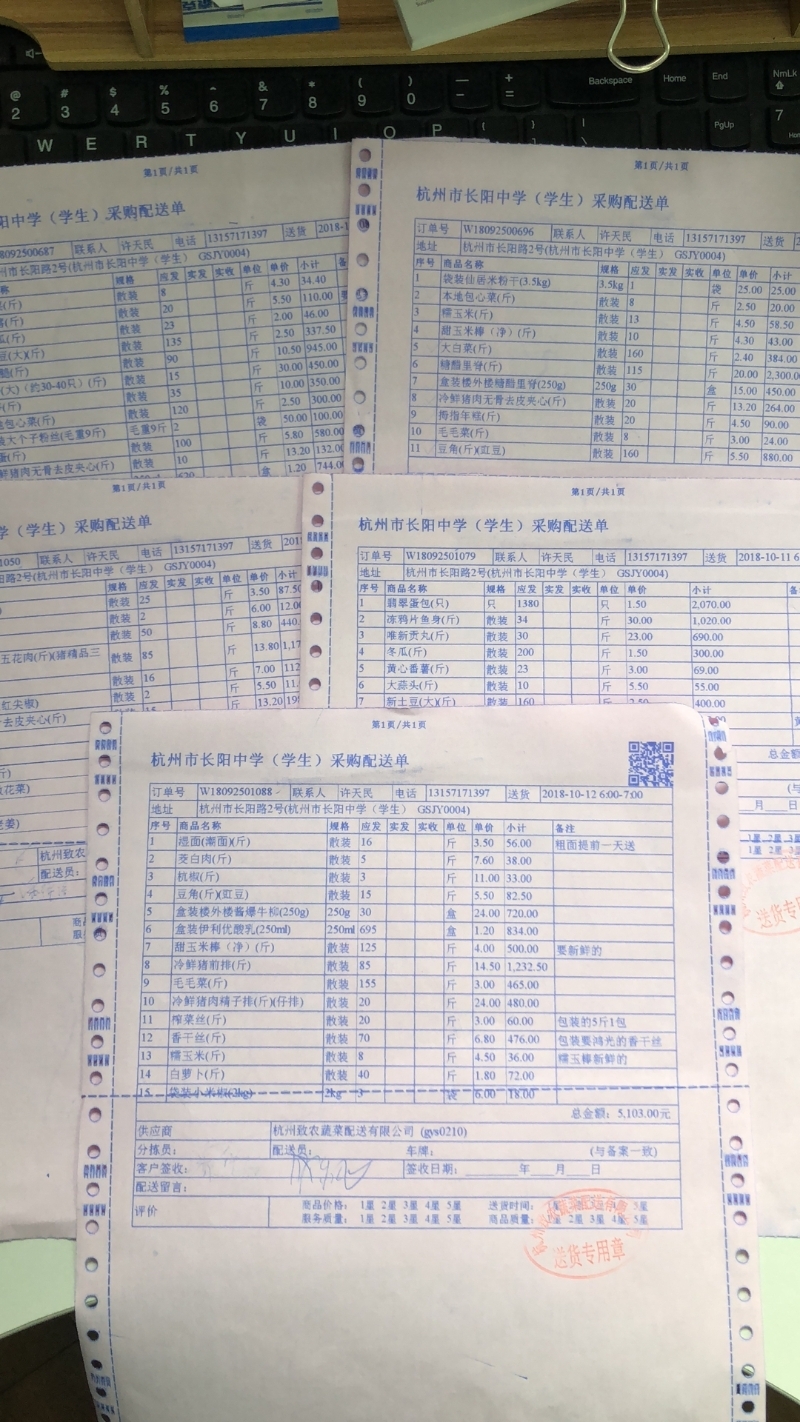 @ # $ % ^ & * ( ) — +
2 3 4 5 6 7 8 9 0 =
Backspace Home End NmLk
W E R T Y U I O P
PgUp 7
第1页/共1页
阳中学（学生）采购配送单
8092500687 联系人 许天民 电话 13157171397 送货 2018-1
州市长阳路2号(杭州市长阳中学（学生） GSJY0004)
规格 应发 实发 实收 单位 单价 小计
散装 8 斤 4.30 34.40
散装 20 5.50 110.00
散装 23 斤 2.00 46.00
散装 135 斤 2.50 337.50
散装 90 斤 10.50 945.00
散装 15 斤 30.00 450.00
(大)（约30-40只）(斤) 散装 35 斤 10.00 350.00
散装 120 斤 2.50 300.00
包心菜(斤) 毛重9斤 2 袋 50.00 100.00
大个子粉丝(毛重9斤) 散装 100 斤 5.80 580.00
散装 10 斤 13.20 132.00
鲜猪肉无骨去皮夹心(斤) 盒 1.20 744.0
第1页/共1页
杭州市长阳中学（学生）采购配送单
订单号 W18092500696 联系人 许天民 电话 13157171397 送货
地址 杭州市长阳路2号(杭州市长阳中学（学生） GSJY0004)
序号 商品名称 规格 应发 实发 实收 单位 单价 小计
1 袋装仙居米粉干(3.5kg) 3.5kg 1 袋 25.00 25.00
2 本地包心菜(斤) 散装 8 斤 2.50 20.00
3 糯玉米(斤) 散装 13 斤 4.50 58.50
4 甜玉米棒（净）(斤) 散装 10 斤 4.30 43.00
5 大白菜(斤) 散装 160 斤 2.40 384.00
6 糖醋里脊(斤) 散装 115 斤 20.00 2,300.0
7 盒装楼外楼糖醋里脊(250g) 250g 30 盒 15.00 450.00
8 冷鲜猪肉无骨去皮夹心(斤) 散装 20 斤 13.20 264.00
9 拇指年糕(斤) 散装 20 斤 4.50 90.00
10 毛毛菜(斤) 散装 8 斤 3.00 24.00
11 豆角(斤)(豇豆) 散装 160 斤 5.50 880.00
第1页/共1页
学（学生）采购配送单
1050 联系人 许天民 电话 13157171397 送货 201
阳路2号(杭州市长阳中学（学生） GSJY0004)
规格 应发 实发 实收 单位 单价 小计
散装 25 斤 3.50 87.50
散装 2 斤 6.00 12.0
散装 50 斤 8.80 440.
五花肉(斤)(猪精品三 散装 85 斤 13.80 1,17
散装 16 斤 7.00 112
红尖椒) 散装 2 斤 5.50 11.
去皮夹心(斤) 斤 13.20
花菜)
老姜)
杭州致农
配送员:
第1页/共1页
杭州市长阳中学（学生）采购配送单
订单号 W18092501079 联系人 许天民 电话 13157171397 送货 2018-10-11 6
地址 杭州市长阳路2号(杭州市长阳中学（学生） GSJY0004)
序号 商品名称 规格 应发 实发 实收 单位 单价 小计
1 翡翠蛋包(只) 只 1380 只 1.50 2,070.00
2 冻鸦片鱼身(斤) 散装 34 斤 30.00 1,020.00
3 唯新贡丸(斤) 散装 30 斤 23.00 690.00
4 冬瓜(斤) 散装 200 斤 1.50 300.00
5 黄心番薯(斤) 散装 23 斤 3.00 69.00
6 大蒜头(斤) 散装 10 斤 5.50 55.00
7 新土豆(大)(斤) 散装 160 斤 2.50 400.00
总金额:
月 日
送货专用
第1页/共1页
杭州市长阳中学（学生）采购配送单
订单号 W18092501088 联系人 许天民 电话 13157171397 送货 2018-10-12 6:00-7:00
地址 杭州市长阳路2号(杭州市长阳中学（学生） GSJY0004)
序号 商品名称 规格 应发 实发 实收 单位 单价 小计 备注
1 湿面(潮面)(斤) 散装 16 斤 3.50 56.00 粗面提前一天送
2 茭白肉(斤) 散装 5 斤 7.60 38.00
3 杭椒(斤) 散装 3 斤 11.00 33.00
4 豆角(斤)(豇豆) 散装 15 斤 5.50 82.50
5 盒装楼外楼酱爆牛柳(250g) 250g 30 盒 24.00 720.00
6 盒装伊利优酸乳(250ml) 250ml 695 盒 1.20 834.00
7 甜玉米棒（净）(斤) 散装 125 斤 4.00 500.00 要新鲜的
8 冷鲜猪前排(斤) 散装 85 斤 14.50 1,232.50
9 毛毛菜(斤) 散装 155 斤 3.00 465.00
10 冷鲜猪肉精子排(斤)(仔排) 散装 20 斤 24.00 480.00
11 榨菜丝(斤) 散装 20 斤 3.00 60.00 包装的5斤1包
12 香干丝(斤) 散装 70 斤 6.80 476.00 包装要鸿光的香干丝
13 糯玉米(斤) 散装 8 斤 4.50 36.00 糯玉棒新鲜的
14 白萝卜(斤) 散装 40 斤 1.80 72.00
15 袋装小米椒(2kg) 2kg 3 袋 6.00 18.00
总金额: 5,103.00元
供应商 杭州致农蔬菜配送有限公司 (gys0210)
分拣员: 配送员: 车牌: (与备案一致)
客户签收: 签收日期: 年 月 日
配送留言:
评价 商品价格: 1星 2星 3星 4星 5星 送货时间: 星 2星 3星 5星
服务质量: 1星 2星 3星 4星 5星 商品质量: 2星 3星 4星 5星
送货专用章